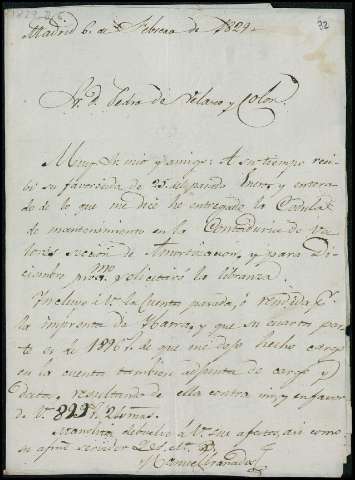 1829-2-6
32
Madrid 6. de Febrero de 1829.
Sr. D. Pedro de Velasco y Colon.
Muy Sr. mio y amigo: A su tiempo reci
bi su favorecida de 25. del pasado Enero, y entera
do de lo que me dice he entregado la Cedula
de mantenimiento en la Contaduria de Va
lores seccion de Amortizacion, y para Di
ciembre proxmo. solicitaré la libranza.
Incluyo á V. la Cuenta pasada, ó rendida
la imprenta de Ibarra, y que su cuarta par
te es de 1896 de que me dejo hecho cargo
en la cuenta tambien adjunta de cargo y
data, resultando de ella contra mi, y en favor
de V. 811 2 mrs.
debuelve á V. sus afectos, asi como
su afmo. servidor Q. S. M. B.
Manuel Granada